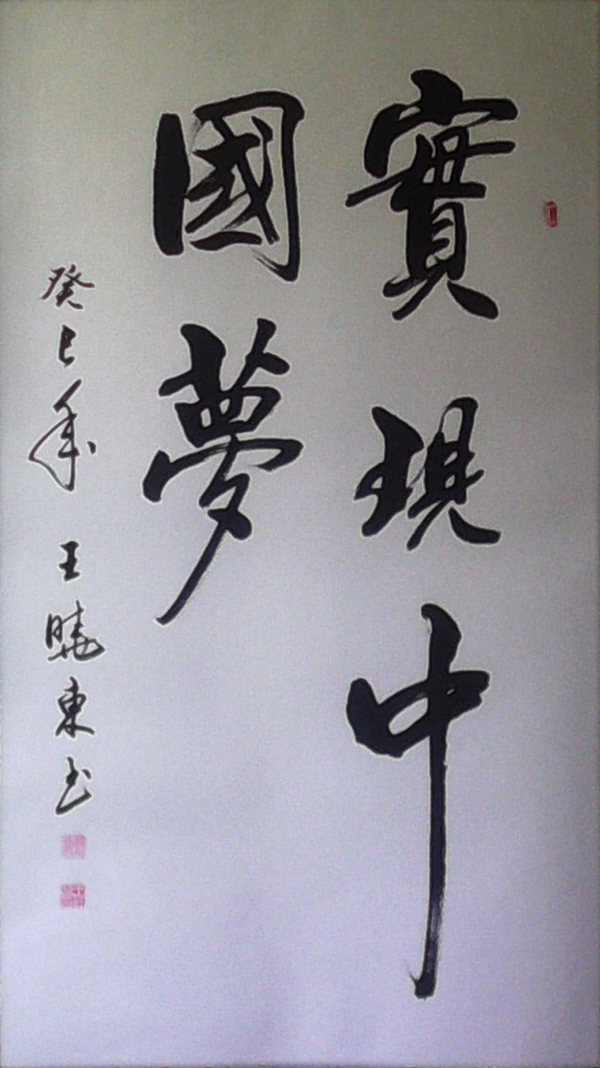 實現中
國夢
癸巳年 王曉東书